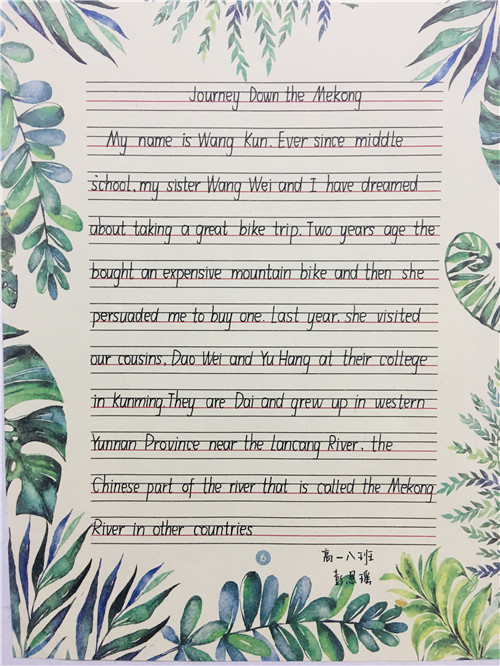 Journey Down the Mekong
My name is Wang Kun. Ever since middle
school, my sister Wang Wei and I have dreamed
about taking a great bike trip. Two years age the
bought an expensive mountain bike and then she
persuaded me to buy one. Last year, she visited
our cousins, Dao Wei and Yu Hang at their college
in Kunming. They are Dai and grew up in western
Yunnan Province near the Lancang River, the
Chinese part of the river that is called the Mekong
River in other countries
6
高一八班
彭思瑶